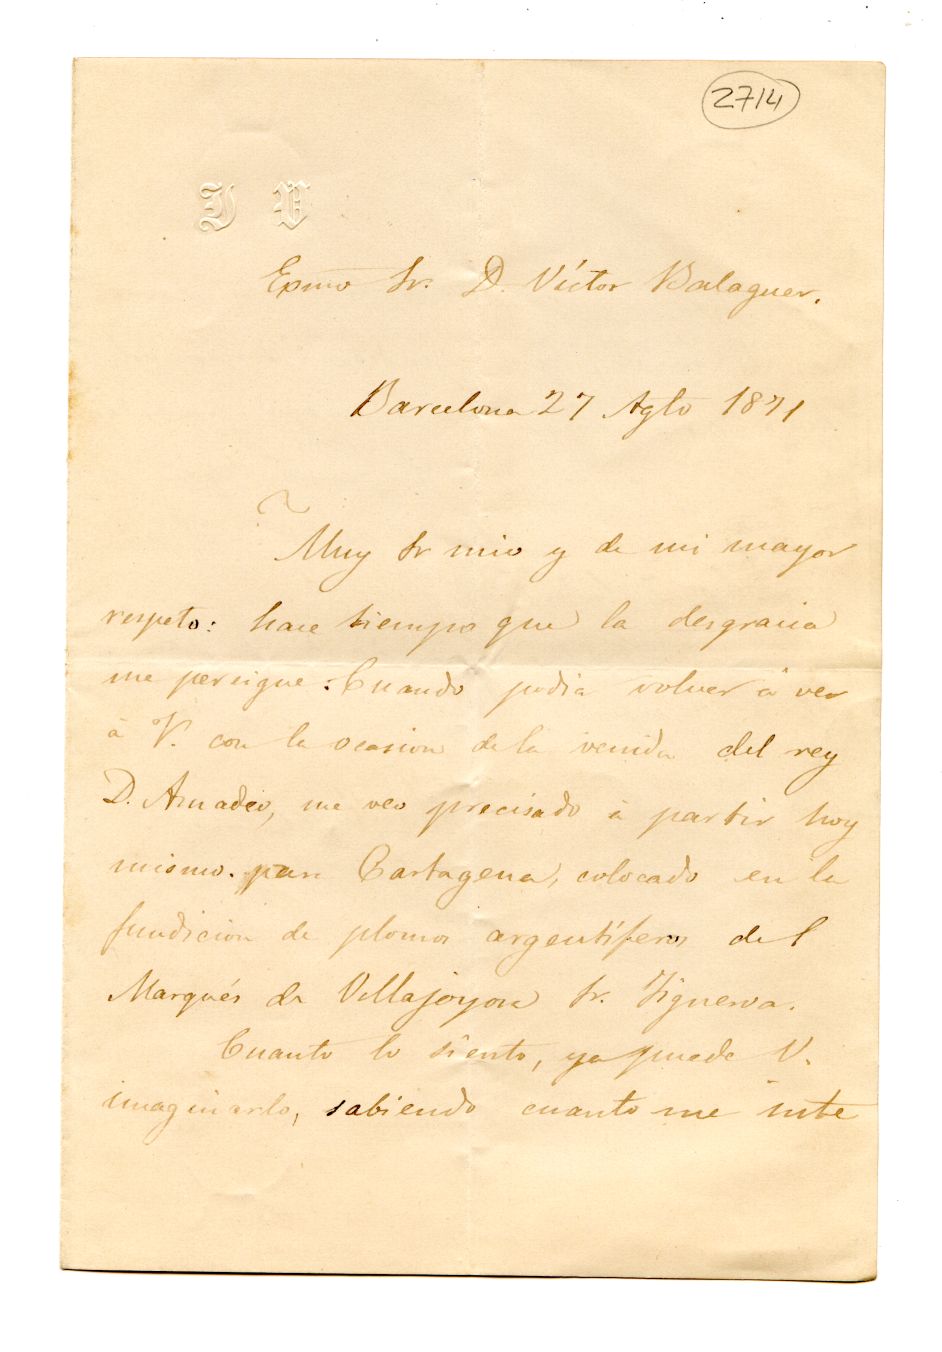 2714
J V
Exmo Sr. D. Víctor Balaguer.
Barcelona 27 Agto 1871
Muy Sr mio y de mi mayor
respeto: hace tiempo que la desgracia
me persigue: Cuando podia volver á ver
á V. con la ocasion de la venida del rey
D. Amadeo, me veo precisado á partir hoy
mismo para Cartagena, colocado en la
fundicion de plomos argentíferos del
Marqués de Villajoyosa Sr. Figuerva.
Cuanto lo siento, ya puede V.
imaginarlo, sabiendo cuanto me inte